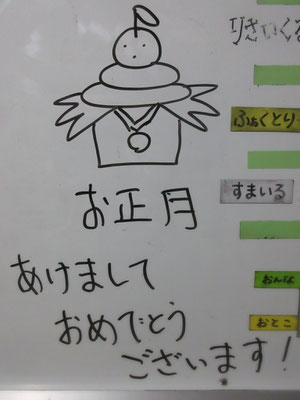 りさいくる
ふぁくとりー
お正月
すまいる
あけまして
おめでとう
ございます！
おんな
おとこ